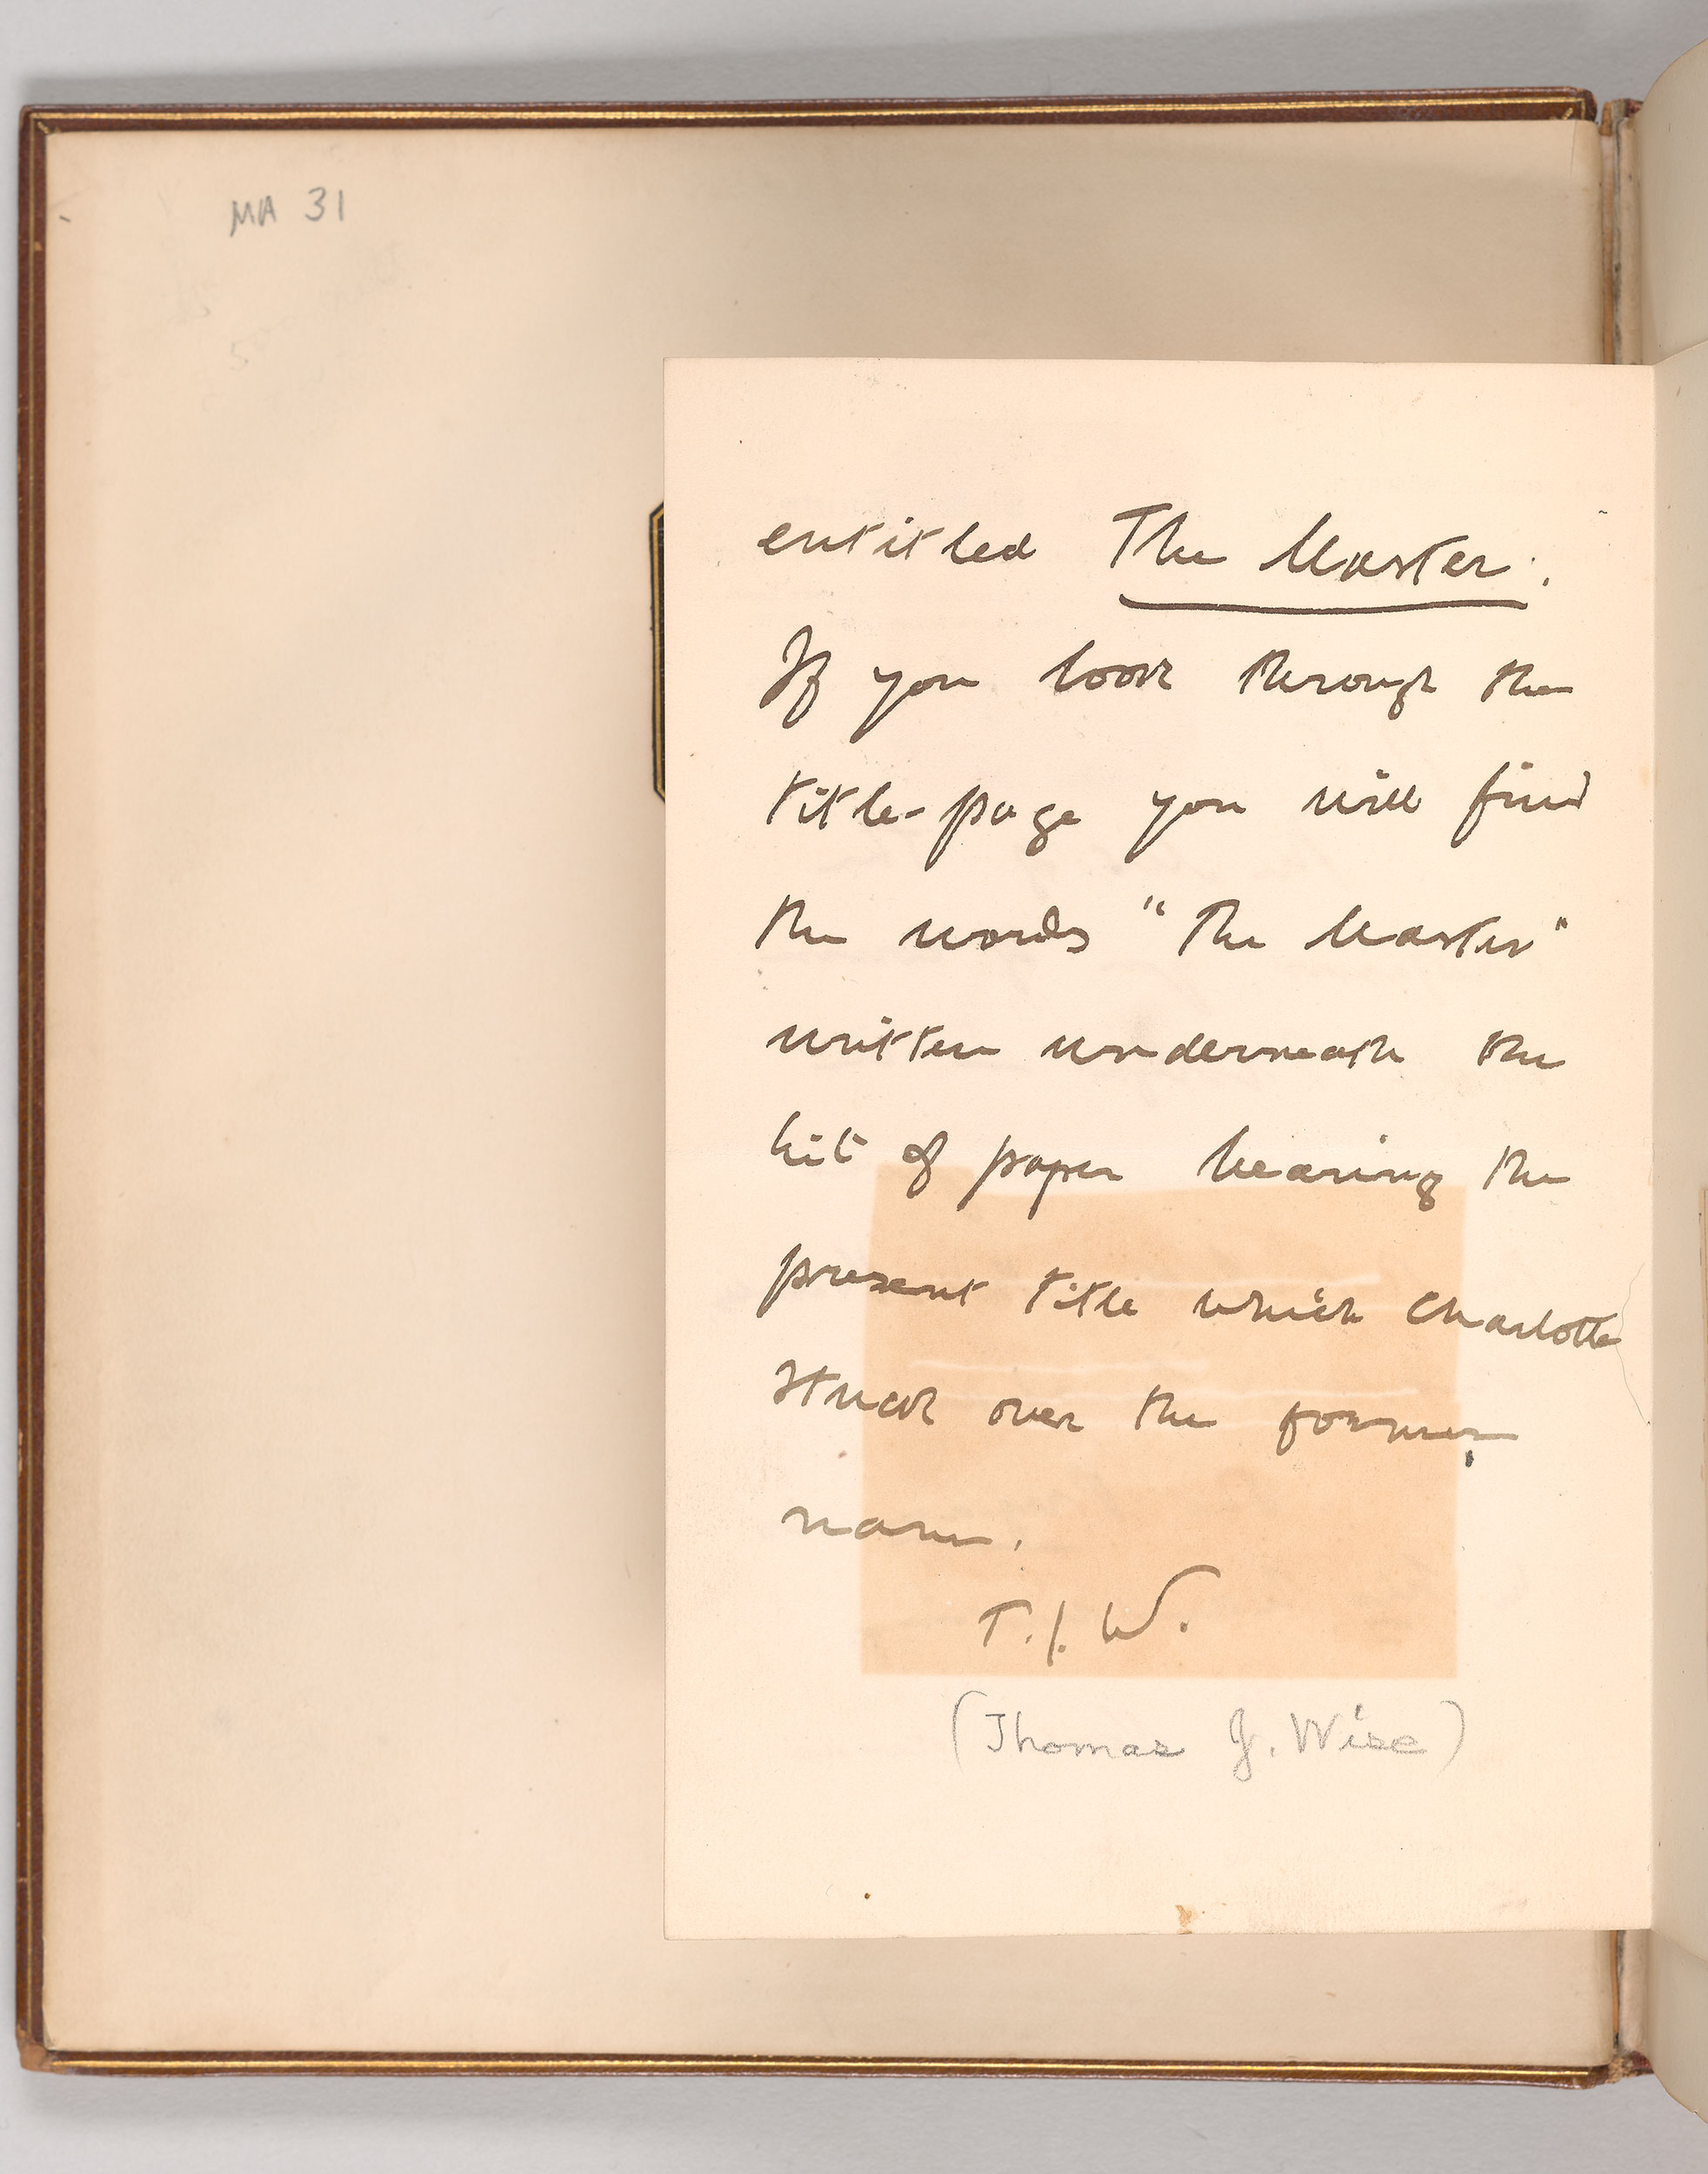 MA 31
entitled The Master.
If you look through the
title-page you will find
the words "The Master"
written underneath the
bit of paper bearing the
present title which Charlotte
stuck over the former
name.
T.J.W.
(Thomas J. Wise)